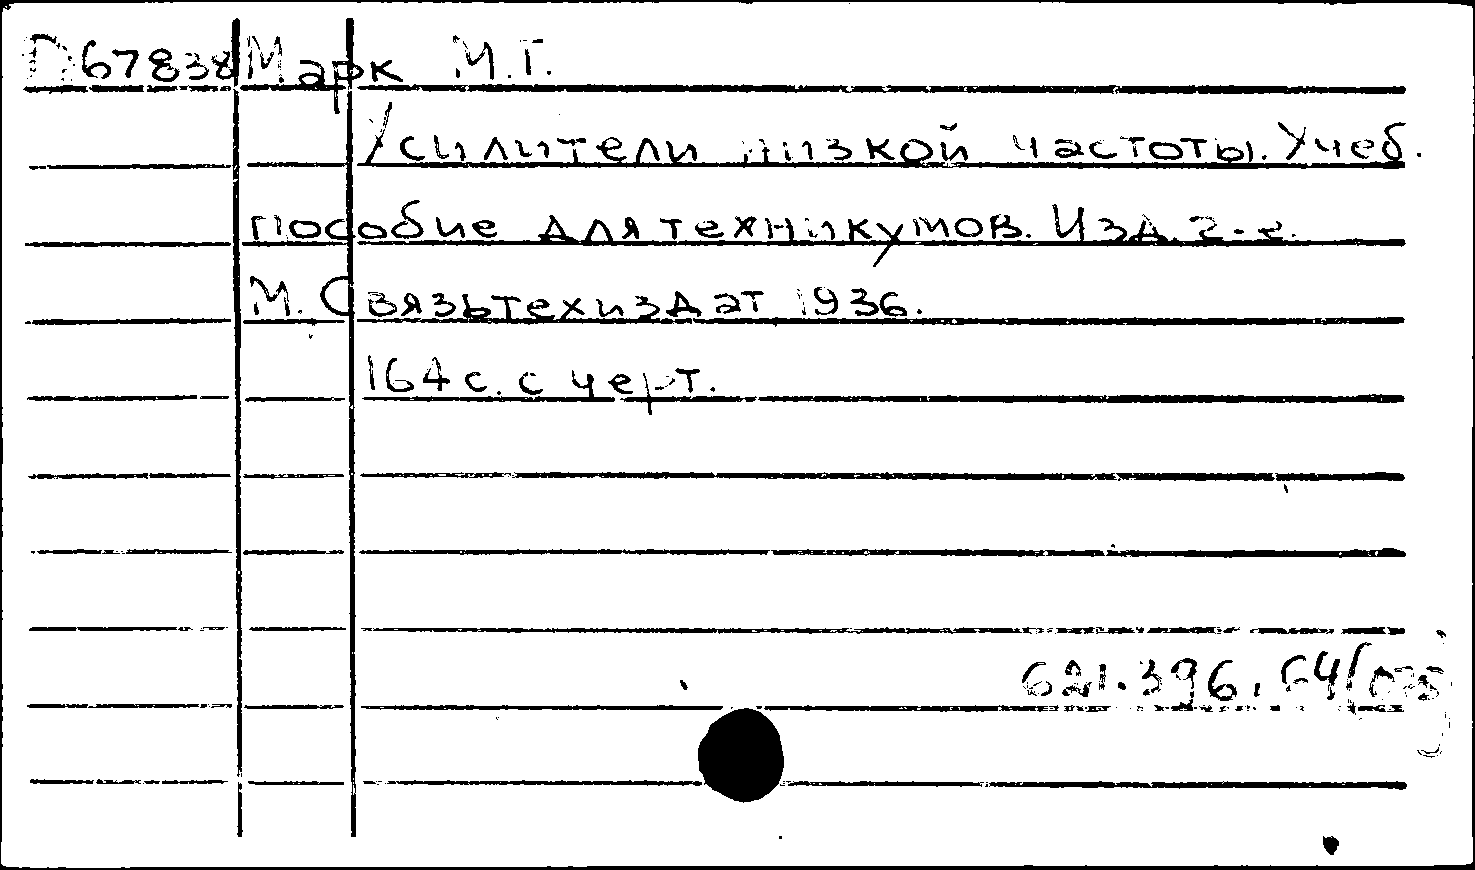 D67838 Марк М.Г.
Усилители низкой частоты. Учеб.
пособие для техникумов. Изд. 2-е.
М. Связьтехиздат 1936.
164 с. с черт.
621.396.64(075)